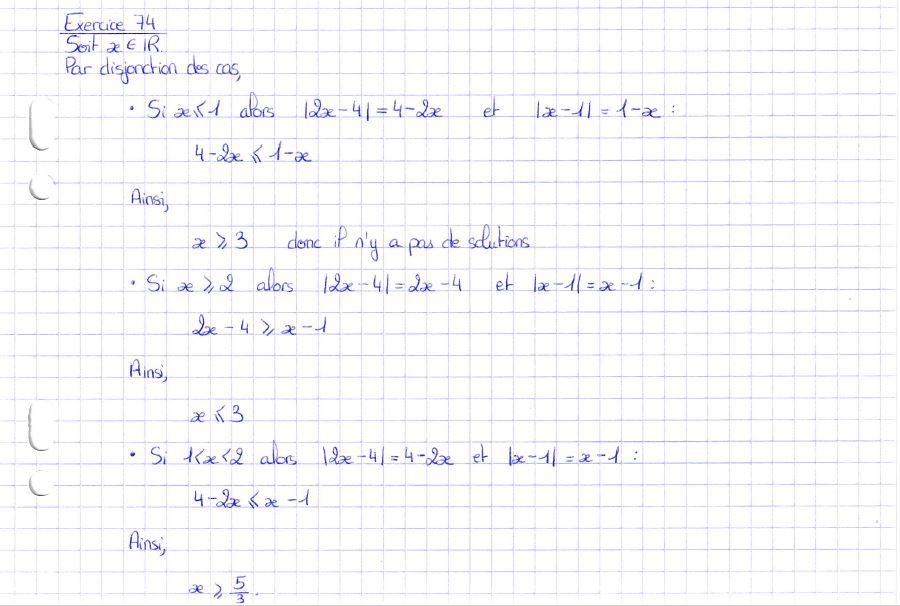 Exercice 74
Soit x ∈ ℝ.
Par disjonction des cas,
• Si x ⩽ 1 alors |2x-4| = 4-2x et |x-1| = 1-x :
4-2x ⩽ 1-x
Ainsi,
x ⩾ 3 donc il n'y a pas de solutions
• Si x ⩾ 2 alors |2x-4| = 2x-4 et |x-1| = x-1 :
2x-4 ⩾ x-1
Ainsi,
x ⩽ 3
• Si 1<x<2 alors |2x-4| = 4-2x et |x-1| = x-1 :
4-2x ⩽ x-1
Ainsi,
x ⩾ 5/3.